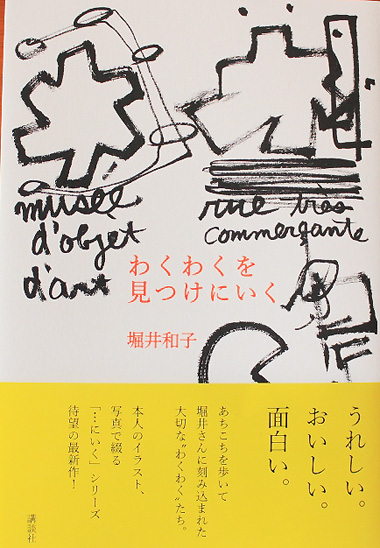 musée
d'objet
d'art
rue très
commerçante
わくわくを
見つけにいく
堀井和子
うれしい。
おいしい。
面白い。
あちこちを歩いて
堀井さんに刻み込まれた
大切な“わくわく”たち。
本人のイラスト、
写真で綴る
「…にいく」シリーズ
待望の最新作！
講談社